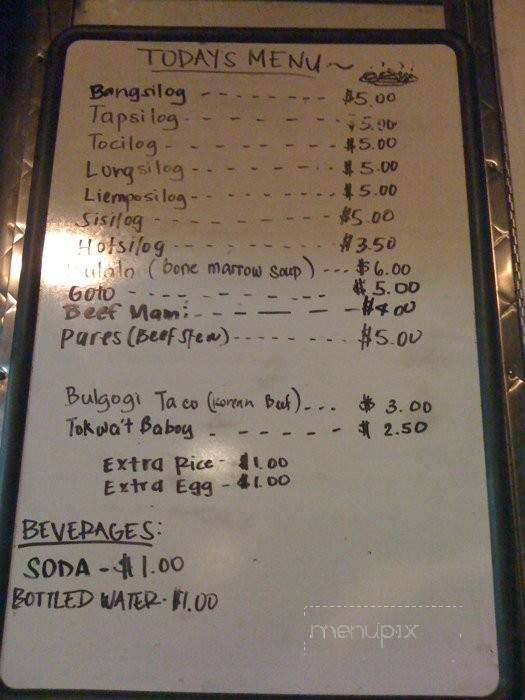 TODAYS MENU ~
Bangsilog - - - - - - - $5.00
Tapsilog - - - - - - $5.00
Tocilog - - - - - - - $5.00
Longsilog - - - - - - $5.00
Liemposilog - - - - - - $5.00
Sisilog - - - - - - - $5.00
Hotsilog - - - - - - - $3.50
Bulalo (bone marrow soup) --- $6.00
Goto - - - - - - - - $5.00
Beef Mami - - - - - - $4.00
Pares (Beef Stew) - - - - - - $5.00
Bulgogi Taco (Korean Beef) --- $3.00
Tokwa't Baboy - - - - - - $2.50
Extra Rice - $1.00
Extra Egg - $1.00
BEVERAGES:
SODA - $1.00
BOTTLED WATER - $1.00
menupix